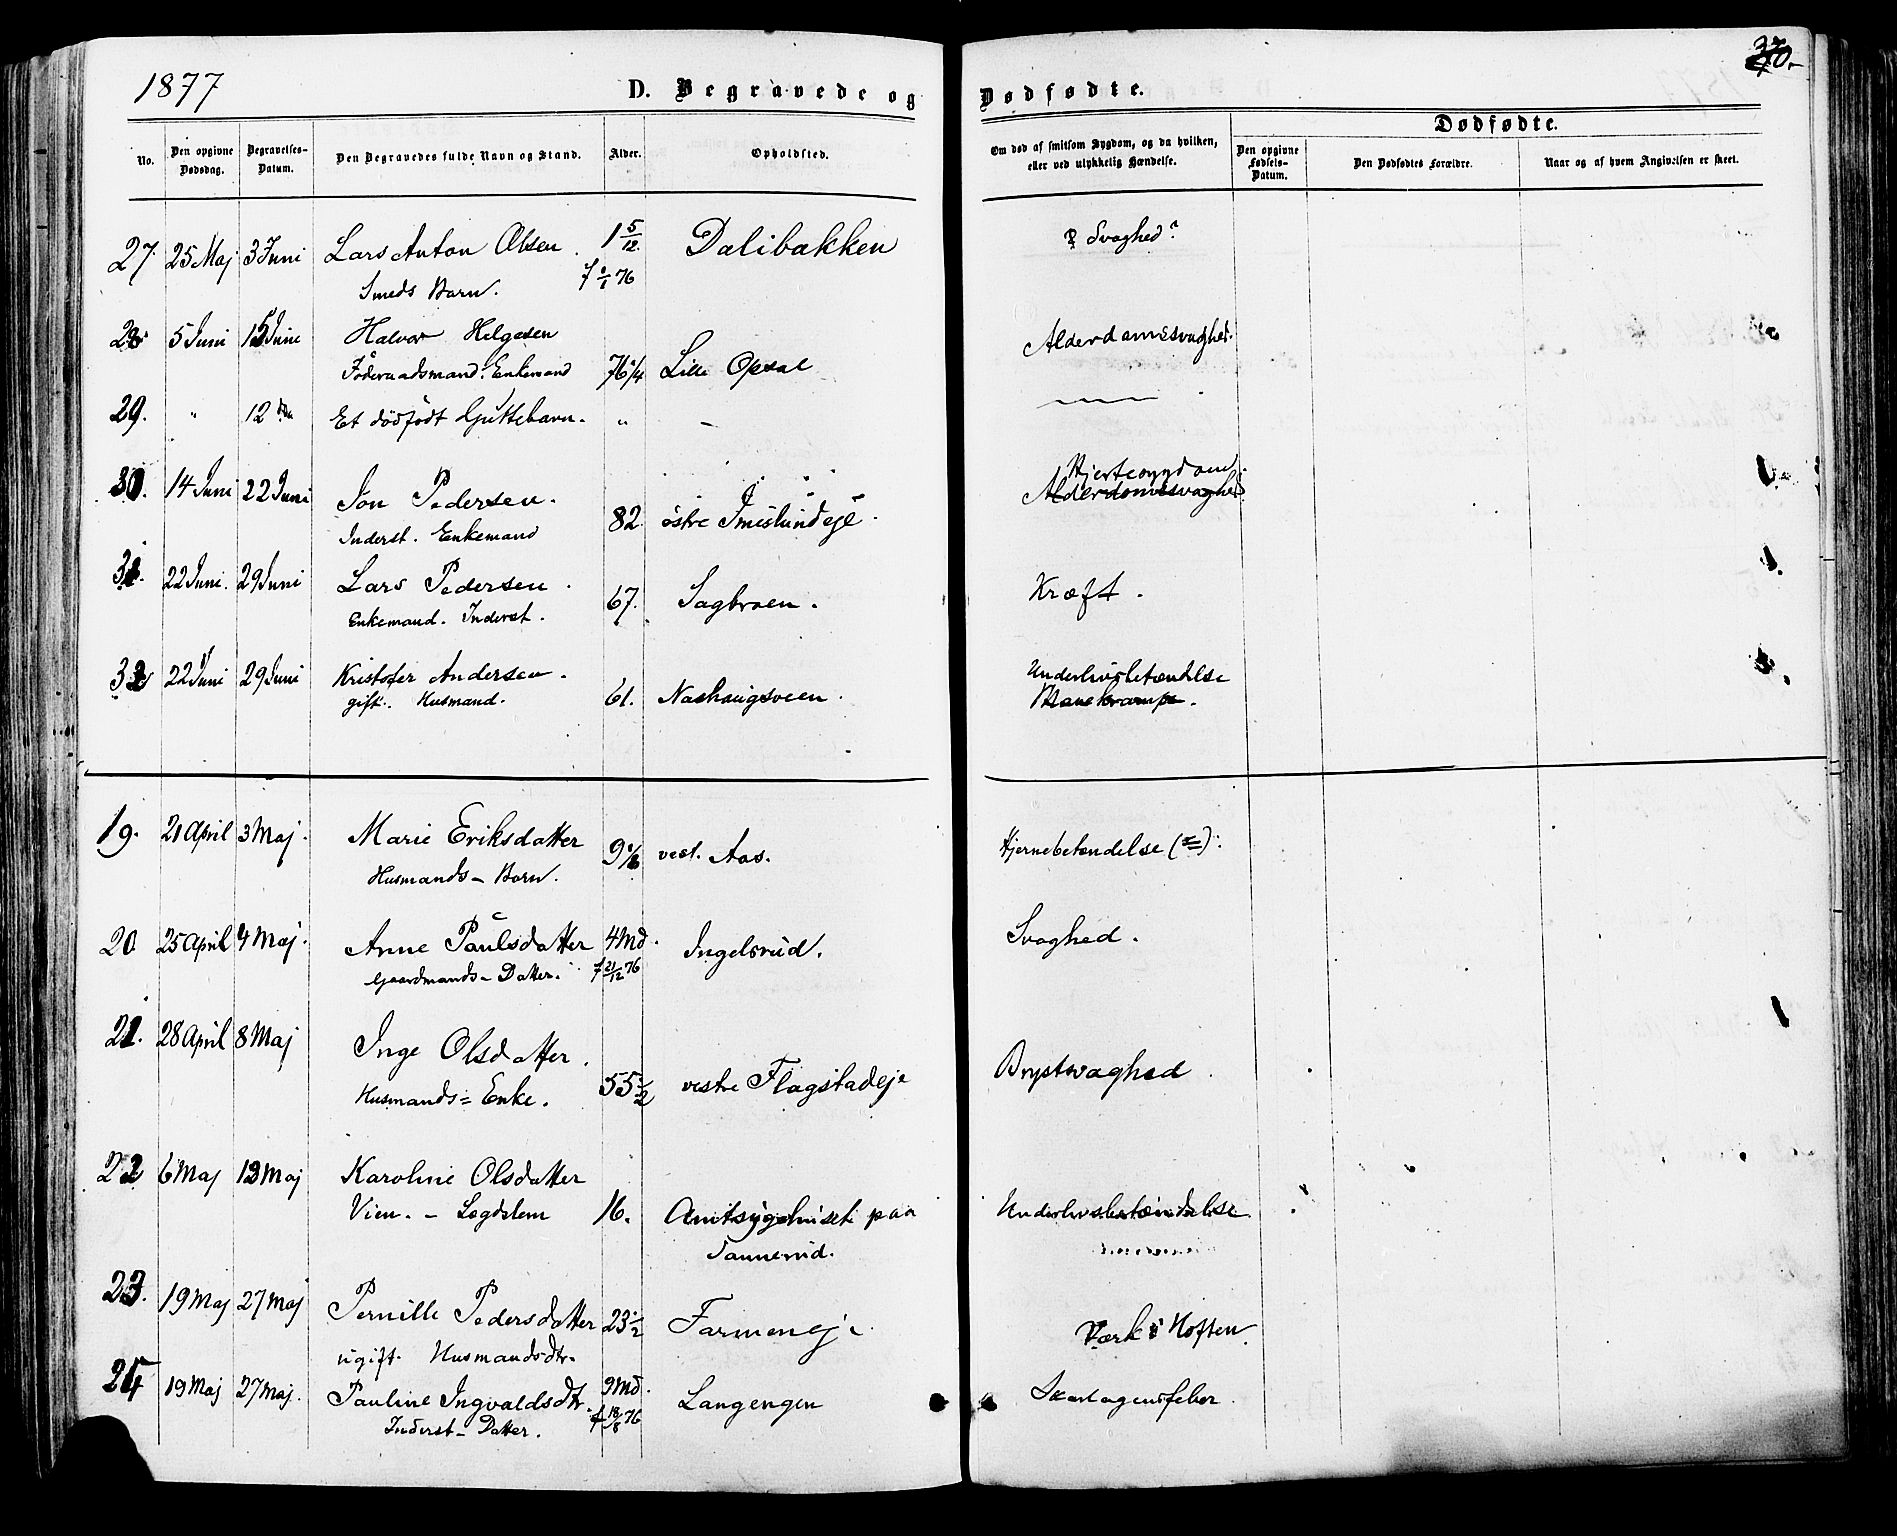 1877 D. Begravede og Dødfødte. 370.
Dødfødte.
No. Den opgivne Dødsdag. Begravelses-Datum. Den Begravedes fulde Navn og Stand. Alder. Opholdsted. Om død af smitsom Sygdom, og da hvilken, eller ved ulykkelig Hændelse. Den opgivne Fødsels-Datum. Den Dødfødtes Forældre. Naar og af hvem Angivelsen er skeet.
27 25 Maj 3 Juni Lars Anton Olsen 1 5/12 Dalibakken Svaghed?
Smeds Barn. 76
28 5 Juni 15 Juni Halvor Helgesen Alderdomssvaghed.
Föderaadsmand. Enkemand 76 1/4 Lille Opsal
29. " 12 Et dödfödt Guttebarn. " –
30. 14 Juni 22 Juni Jon Pedersen. Hjertesygdom.
Inderst. Enkemand 82 østre Imislundeje. Alderdomssvaghed
31. 22 Juni. 29 Juni Lars Pedersen. 67. Sagbroen. Kræft.
Enkemand. Inderst.
32 22 Juni 29 Juni Kristofer Andersen. Underlivsbetændelse
gift. Husmand. 61. Nashaugsveen.
19. 21 April 3 Maj. Marie Eriksdatter 9 1/8 vest. Aas. Hjernebetændelse
Husmands-Barn.
20 25 April 4 Maj. Anne Paulsdatter 4 Md. Ingelsrud. Svaghed.
Gaardmands-Datter. f 21/12 76
21. 28 April 8 Maj Inge Olsdatter.
Husmands-Enke. 55 1/2 vestre Flagstadeje Brystsvaghed
22 6 Maj 13 Maj Karoline Olsdatter
Vien. – Lægdslem 16. Amtsygehuset paa Underlivsbetændelse
Sannerud.
23. 19 Maj 27 Maj Pernille Pedersdatter 23 1/2 Farmeneje Værk i Hoften
ugift. Husmandsdtr.
24 19 Maj 27 Maj. Pauline Ingvaldsdtr. 9 Md. Langengen Skarlagensfeber
Inderst-Datter. f 18/8 76